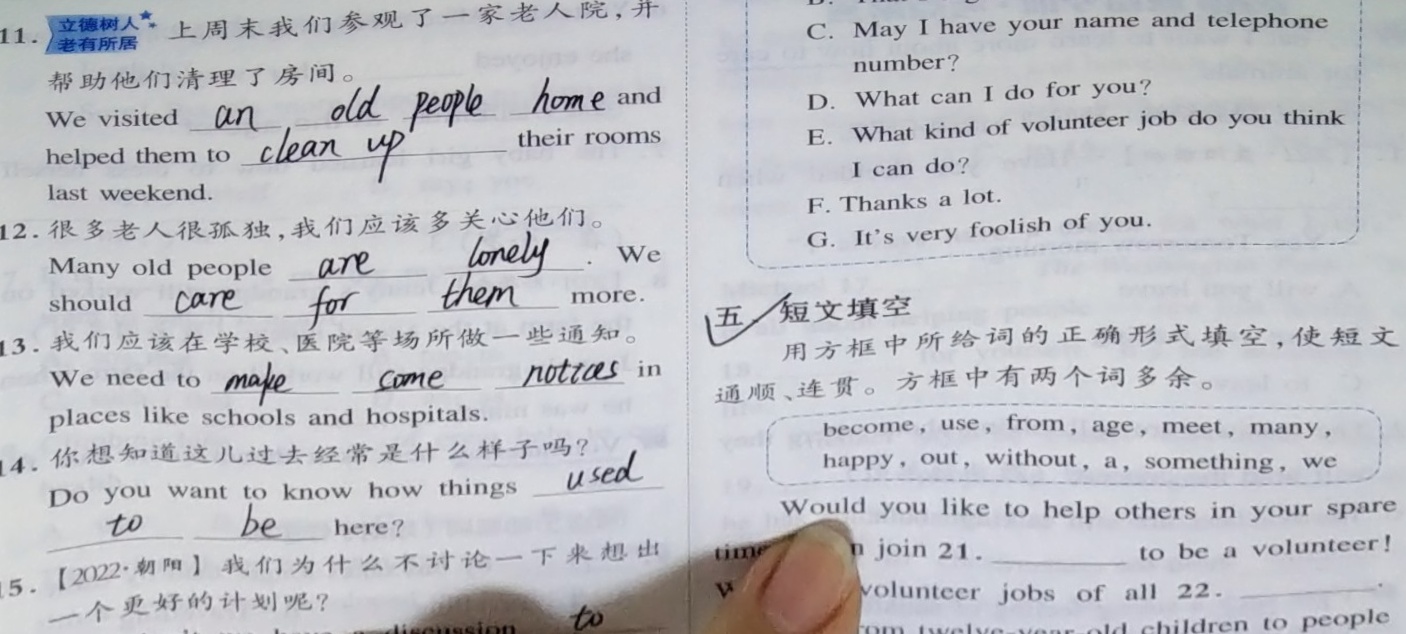 11. 立德树人 老有所居 上周末我们参观了一家老人院,并
帮助他们清理了房间。
We visited an old people home and
helped them to clean up their rooms
last weekend.
12. 很多老人很孤独,我们应该多关心他们。
Many old people are lonely. We
should care for them more.
13. 我们应该在学校、医院等场所做一些通知。
We need to make some notices in
places like schools and hospitals.
14. 你想知道这儿过去经常是什么样子吗?
Do you want to know how things used
to be here?
15. 【2022·朝阳】我们为什么不讨论一下来想出
一个更好的计划呢?
discussion to
C. May I have your name and telephone
number?
D. What can I do for you?
E. What kind of volunteer job do you think
I can do?
F. Thanks a lot.
G. It's very foolish of you.
五 短文填空
用方框中所给词的正确形式填空,使短文
通顺、连贯。方框中有两个词多余。
become, use, from, age, meet, many,
happy, out, without, a, something, we
Would you like to help others in your spare
time join 21. to be a volunteer!
volunteer jobs of all 22. .
twelve-year-old children to people